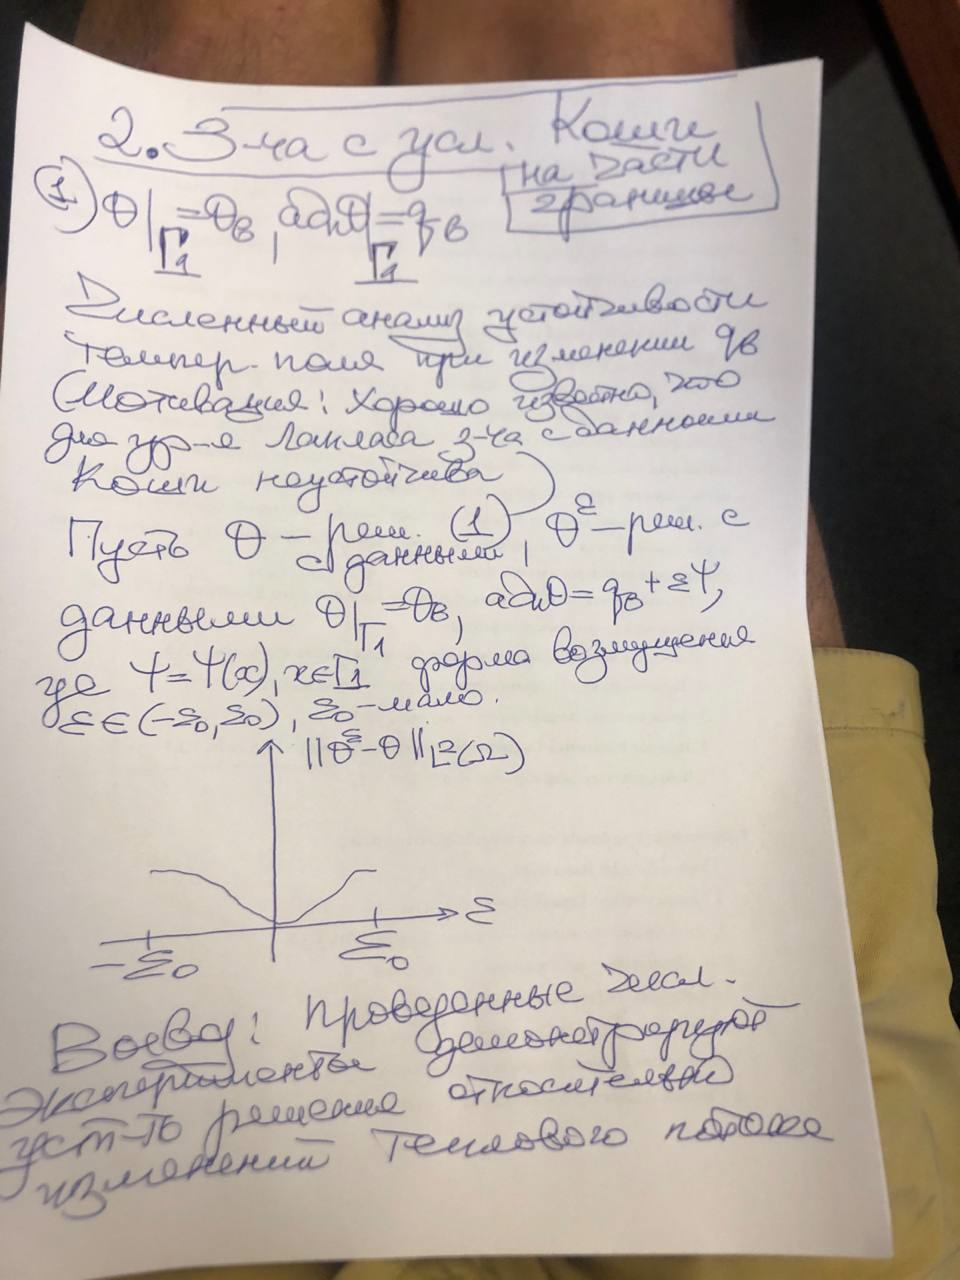 2. З-ча с усл. Коши
на части
границы
(1) θ|Γ₁ = θв, a∂nθ|Γ₁ = qв
Численный анализ устойчивости
темпер. поля при изменении qв
(Мотивация: хорошо известно, что
для ур-я Лапласа з-ча с данными
Коши неустойчива)
Пусть θ – реш. (1), θ^ε – реш. с
с данными
данными θ|Γ₁ = θв, a∂nθ = qв + εψ,
где ψ = ψ(x), x∈Γ₁ форма возмущения
ε ∈ (-ε₀, ε₀), ε₀ – мало.
||θ^ε - θ||L²(Ω)
ε
-ε₀ ε₀
Вывод: Проведенные числ.
эксперименты демонстрируют
уст-ть решения относительно
изменений теплового потока